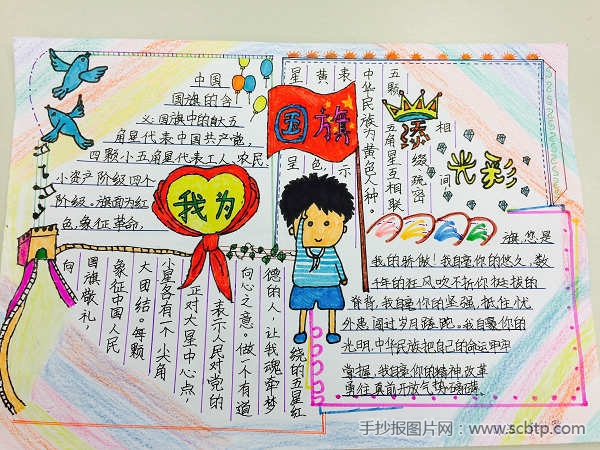 我为
国旗
添
光彩
中国
国旗的含
义国旗中的大五
角星代表中国共产党,
四颗小五角星代表工人、农民、
小资产阶级四个
阶级。旗面为红
色,象征革命,
星呈
黄色
表示
中华民族为黄色人种。
五颗
五角星互相联
缀、疏密
相间,
向
国旗敬礼,
象征中国人民
大团结。每颗
小星各有一个小尖角
正对大星中心点,
表示人民对党的
向心之意。做一个有道
德的人,让我魂牵梦
绕的五星红
旗,您是
我的骄傲!我自豪你的悠久,数
千年的狂风吹不折你挺拔的
脊背,我自豪你的坚强,抵住忧
外患闯过岁月蹉跎。我自豪你的
光明,中华民族把自己的命运牢牢
掌握,我自豪你的精神,改革
勇往直前开放气势磅礴。
手抄报图片网:www.scbtp.com